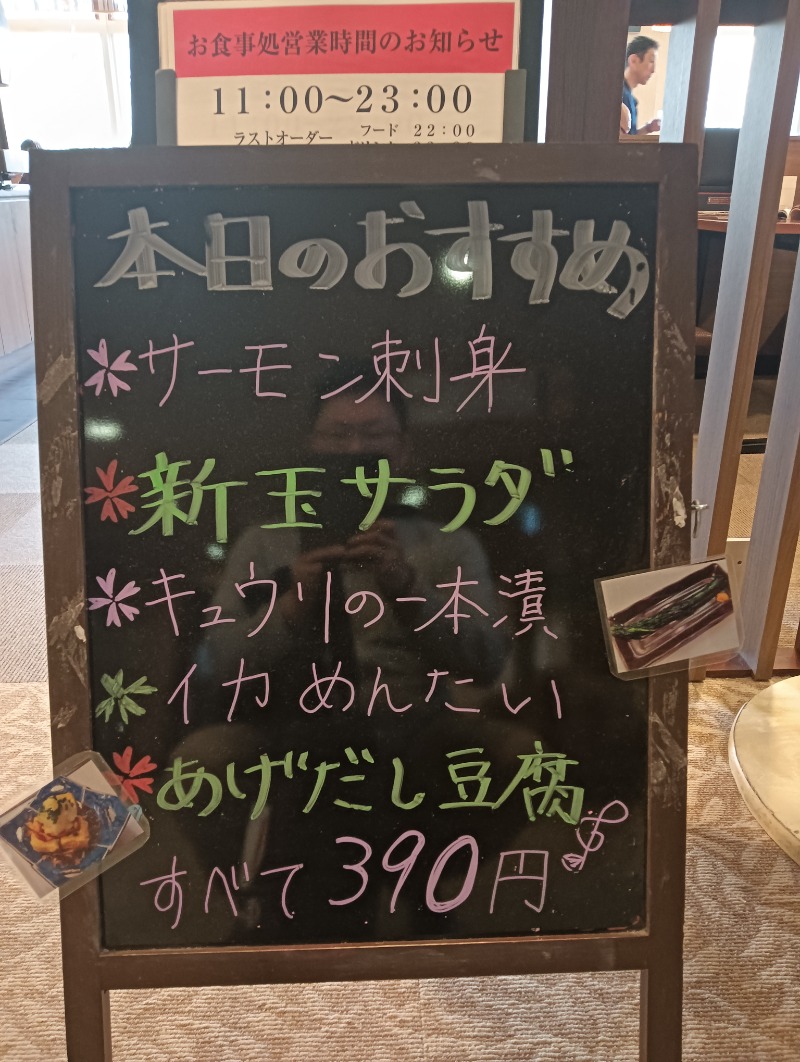 お食事処営業時間のお知らせ
11:00〜23:00
ラストオーダー フード 22:00
本日のおすすめ
サーモン刺身
新玉サラダ
キュウリの一本漬
イカめんたい
あげだし豆腐
すべて390円